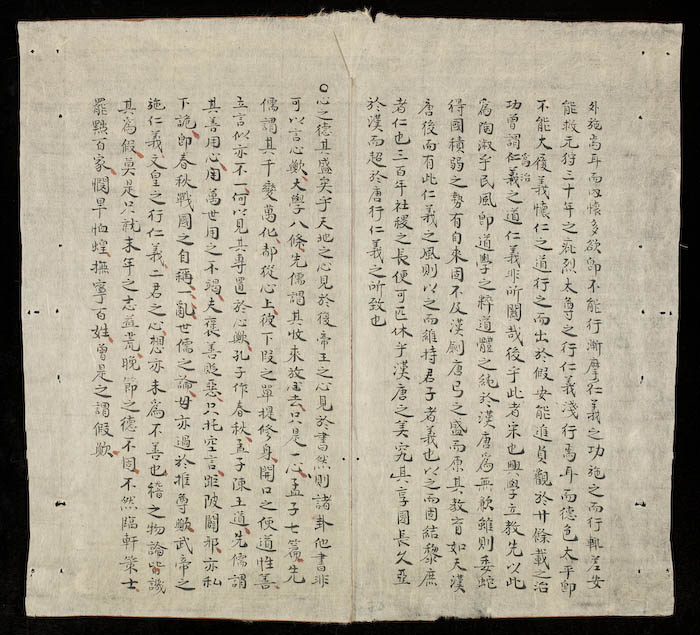 外施焉耳而內懷多欲卽不能行漸摩仁義之功施之而行輒差安
能救元狩三十年之疵烈太尊之行仁義淺行焉耳而德色太平卽
不能大復義懷仁之道行之而出於假安能進貞觀於廿條載之治
功曾謂仁義爲治之道仁義非所闕哉後乎此者宋也興學立教先以此
爲陶淑乎民風卽道學之粹道體之純於漢唐爲無歉雖則委蛇
得國積弱之勢有自來固不及漢劉唐李之盛而原其教育如天漢
唐後而有此仁義之風則以之而維持君子者義也以之而固結黎庶
者仁也三百年社稷之長便可匹休乎漢唐之美究其享國長久亞
於漢而超於唐行仁義之所致也
○心之德其盛矣乎天地之心見於復帝王之心見於書然則諸卦他書非
可以言心歟大學八條先儒謂其收來放去只是一心孟子七篇先
儒謂其千變萬化都從心上彼下段之單提修身開口之便道性善
立言似亦不一何以見其專置於心歟孔子作春秋孟子陳王道先儒謂
其善用心用萬世用之不竭夫褒善貶惡只托空言距陂闢邪亦私
下說卽春秋戰國之自稱亂世儒之論毋亦過於推尊歟武帝之
施仁義文皇之行仁義二君之心想亦未爲不善也稽之物論皆譏
其爲假莫是只就末年之志益荒晚節之德不固不然臨軒策士
罷黜百家憫旱恤蝗撫寧百姓曾是之謂假歟